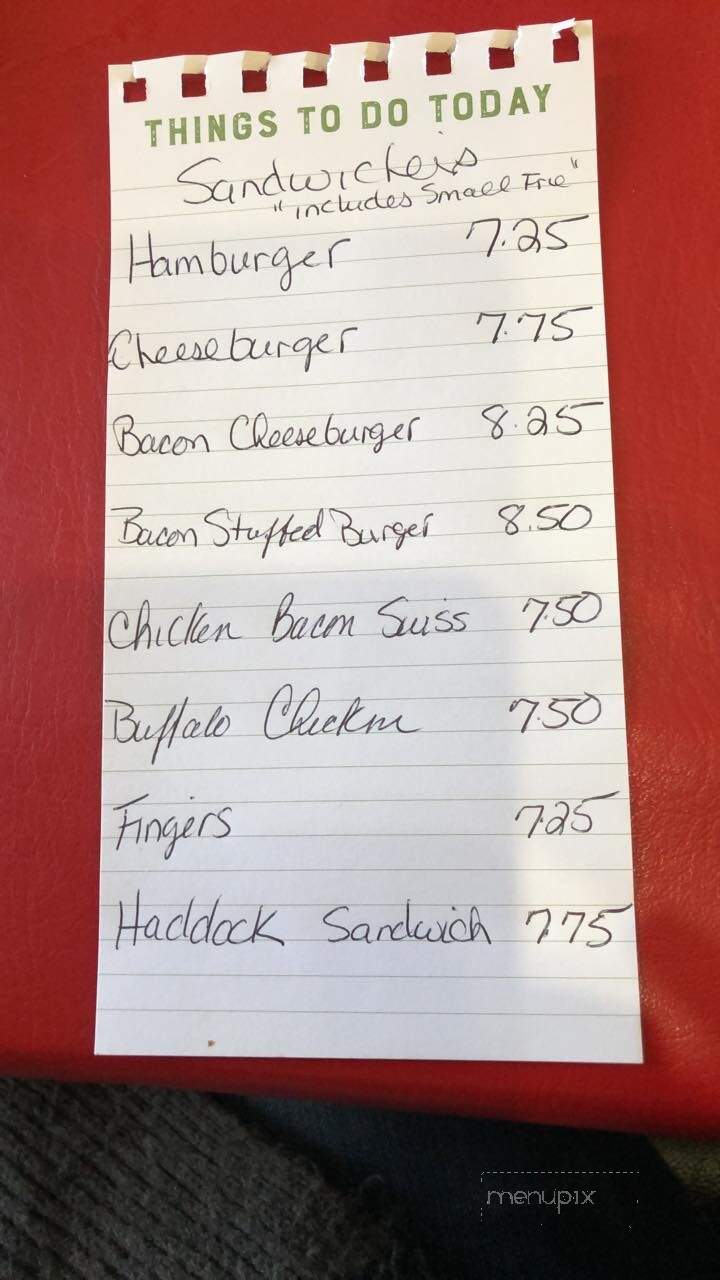 THINGS TO DO TODAY
Sandwiches
"includes Small Frie"
Hamburger 7.25
Cheeseburger 7.75
Bacon Cheeseburger 8.25
Bacon Stuffed Burger 8.50
Chicken Bacon Suiss 7.50
Buffalo Chicken 7.50
Fingers 7.25
Haddock Sandwich 7.75
menupix